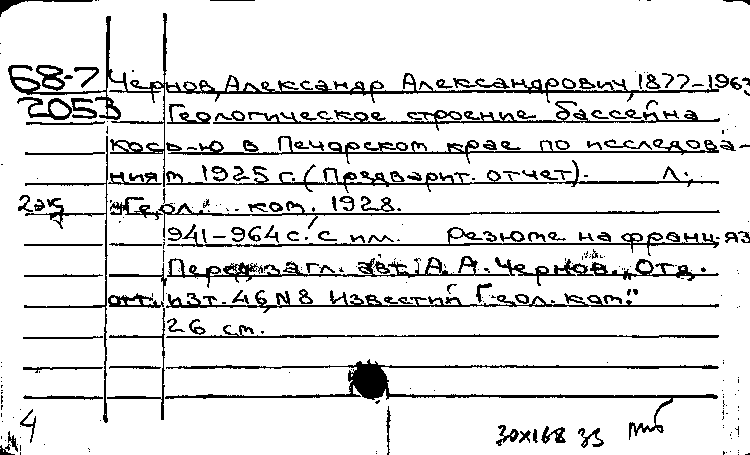 68-7 Чернов, Александр Александрович, 1877-1963
2053 Геологическое строение бассейна
Кось-ю в Печорском крае по исследова-
ниям 1925 г. (Предварит. отчет). Л.,
2 экз Геол. ком. 1928.
941-964 с. с ил. Резюме на франц. яз
Перед загл. авт.: А. А. Чернов. „Отд.
отт. из т. 46, N 8 Известий Геол. ком."
26 см.
4
30х168 зз